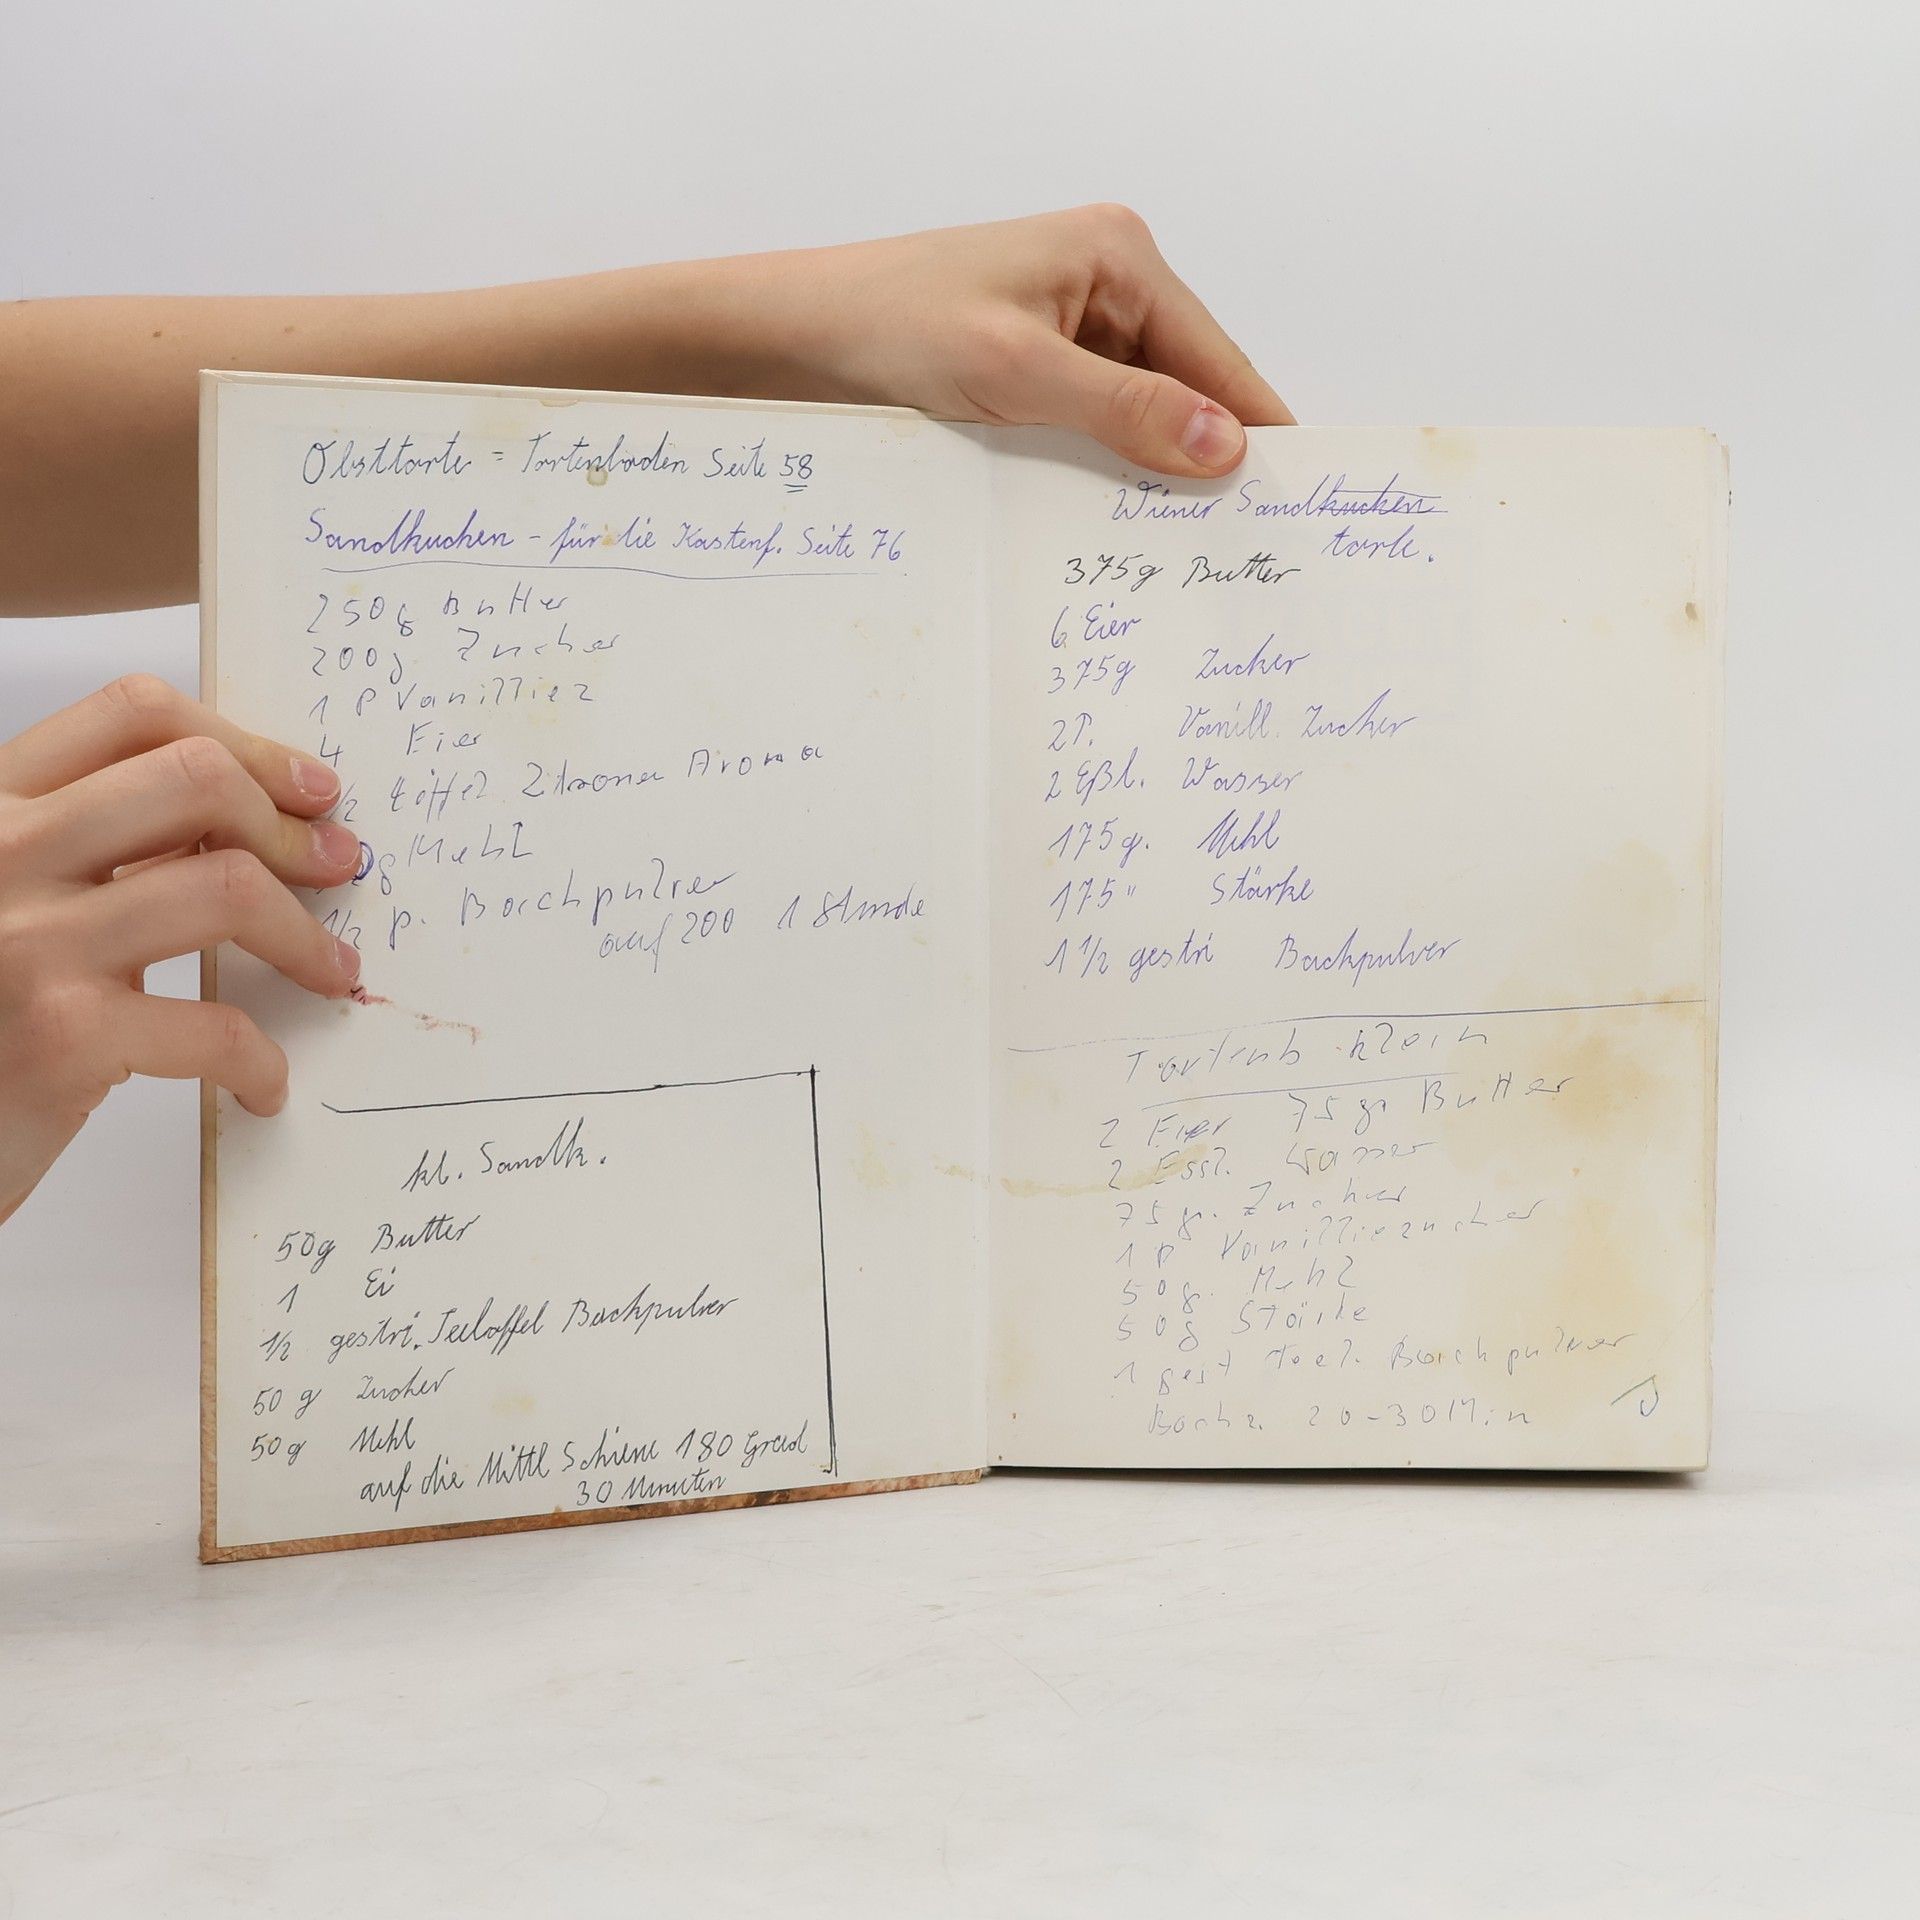 Obsttorte = Tortenboden Seite 58
Sandkuchen - für die Kastenf. Seite 76
250g Butter
200g Zucker
1 P Vanilliez
4 Eier
1/2 Löffel Zitronen Aroma
g Mehl
1/2 p. Backpulver
auf 200 1 Stunde
kl. Sandk.
50g Butter
1 Ei
1/2 gestri. Teelöffel Backpulver
50 g Zucker
50g Mehl
auf die Mittl Schiene 180 Grad
30 Minuten
Wiener Sandkuchen
torte.
375g Butter
6 Eier
375g Zucker
2P. Vanill. Zucker
2 Eßl. Wasser
175g. Mehl
175 " Stärke
1 1/2 gestri Backpulver
Tortenb klein
2 Eier 75 gr Butter
2 Essl. Wasser
75 gr. Zucker
1 P Vanilliezucker
50 g. Mehl
50 g Stärke
1 gest Teel. Backpulver
Backz. 20-30 Min